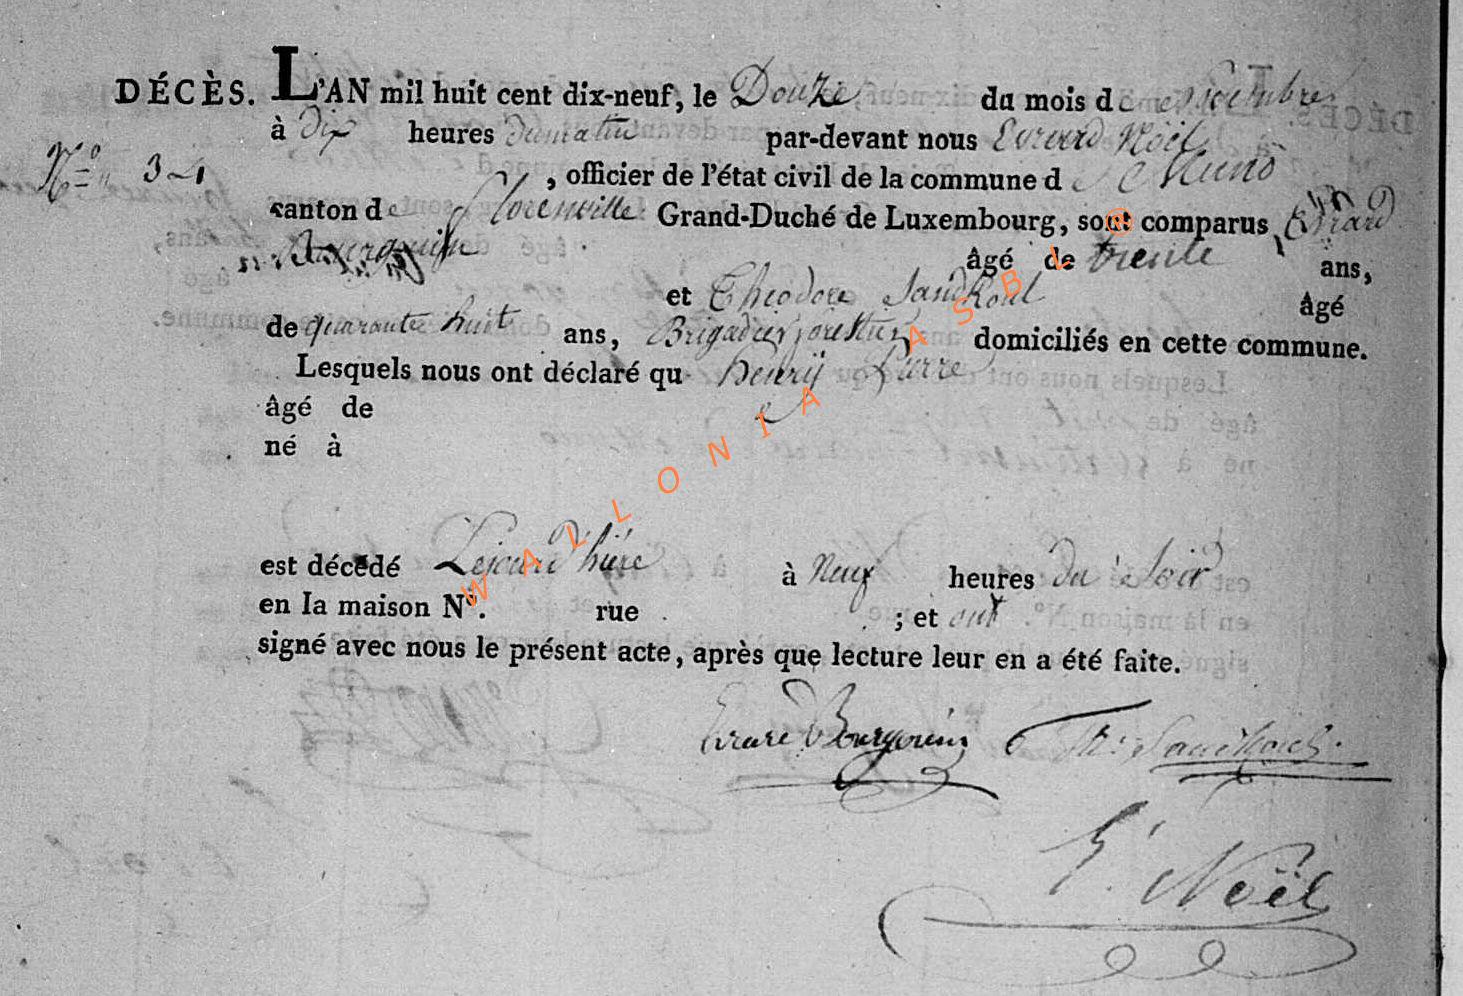 DÉCÈS. L'AN mil huit cent dix-neuf, le Douze du mois de
à Dix heures du matin par-devant nous Evrard Noël
N.º 34 , officier de l'état civil de la commune de Muno
canton de florenville Grand-Duché de Luxembourg, sont comparus, Evrard
Bourguin âgé de trente ans,
et Théodore âgé
de quarante huit ans, Brigadier forestier domiciliés en cette commune.
Lesquels nous ont déclaré qu henrÿ Pierre
âgé de
né à
est décédé Lejour d'hier à Neuf heures du Soir
en la maison Nº. rue ; et ont
signé avec nous le présent acte, après que lecture leur en a été faite.
Evrard Bourguin Th:
E. Noël
® WALLONIA ASBL